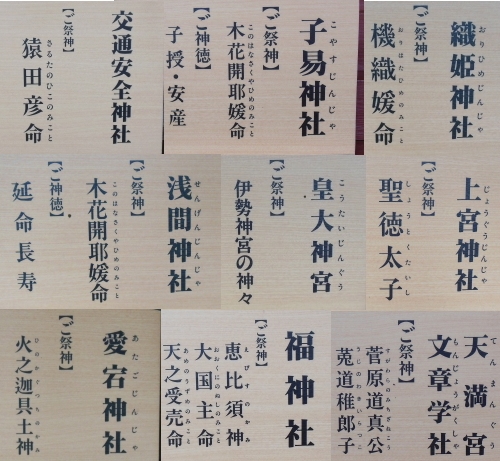 交通安全神社
【ご祭神】
猿田彦命
さるたのひこのみこと
子易神社
こやすじんじゃ
【ご祭神】
木花開耶媛命
このはなさくやひめのみこと
【ご神徳】
子授・安産
織姫神社
おりひめじんじゃ
【ご祭神】
機織媛命
おりはたひめのみこと
浅間神社
せんげんじんじゃ
【ご祭神】
木花開耶媛命
このはなさくやひめのみこと
【ご神徳】
延命長寿
皇大神宮
こうたいじんぐう
【ご祭神】
伊勢神宮の神々
上宮神社
じょうぐうじんじゃ
【ご祭神】
聖徳太子
しょうとくたいし
愛宕神社
あたごじんじゃ
【ご祭神】
火之迦具土神
ひのかぐつちのかみ
福神社
【ご祭神】
恵比須神
えびすのかみ
大国主命
おおくにのぬしのみこと
天之受売命
あめのうずめのみこと
天満宮
てんまんぐう
文章学社
もんじょうがくしゃ
【ご祭神】
菅原道真公
すがわらのみちざねこう
菟道稚郎子
うじのわきいらつこ